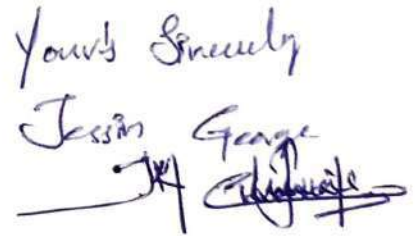 Your's Sincerely
Jessin George